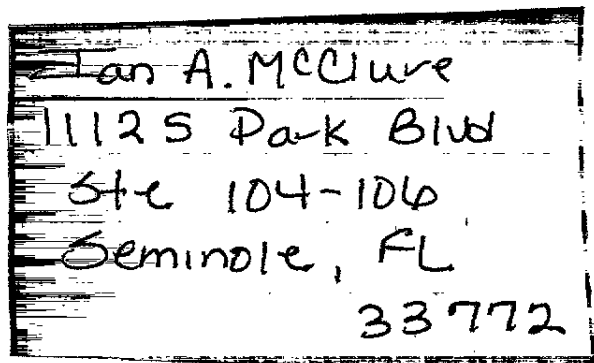 Ian A. McClure
11125 Park Blvd
Ste 104-106
Seminole, FL
33772